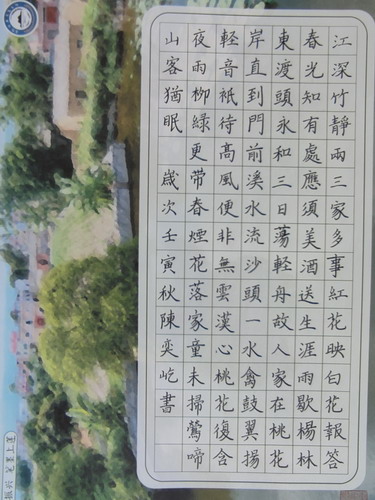 江深竹靜兩三家多事紅花映白花報答
春光知有處應須美酒送生涯雨歇楊林
東渡頭永和三日蕩輕舟故人家在桃花
岸直到門前溪水流沙頭一水禽鼓翼揚
輕音祇待高風便非無雲漢心桃花復含
夜雨柳綠更帶春煙花落家童未掃鶯啼
山客猶眠 歲次壬寅秋陳奕屹書